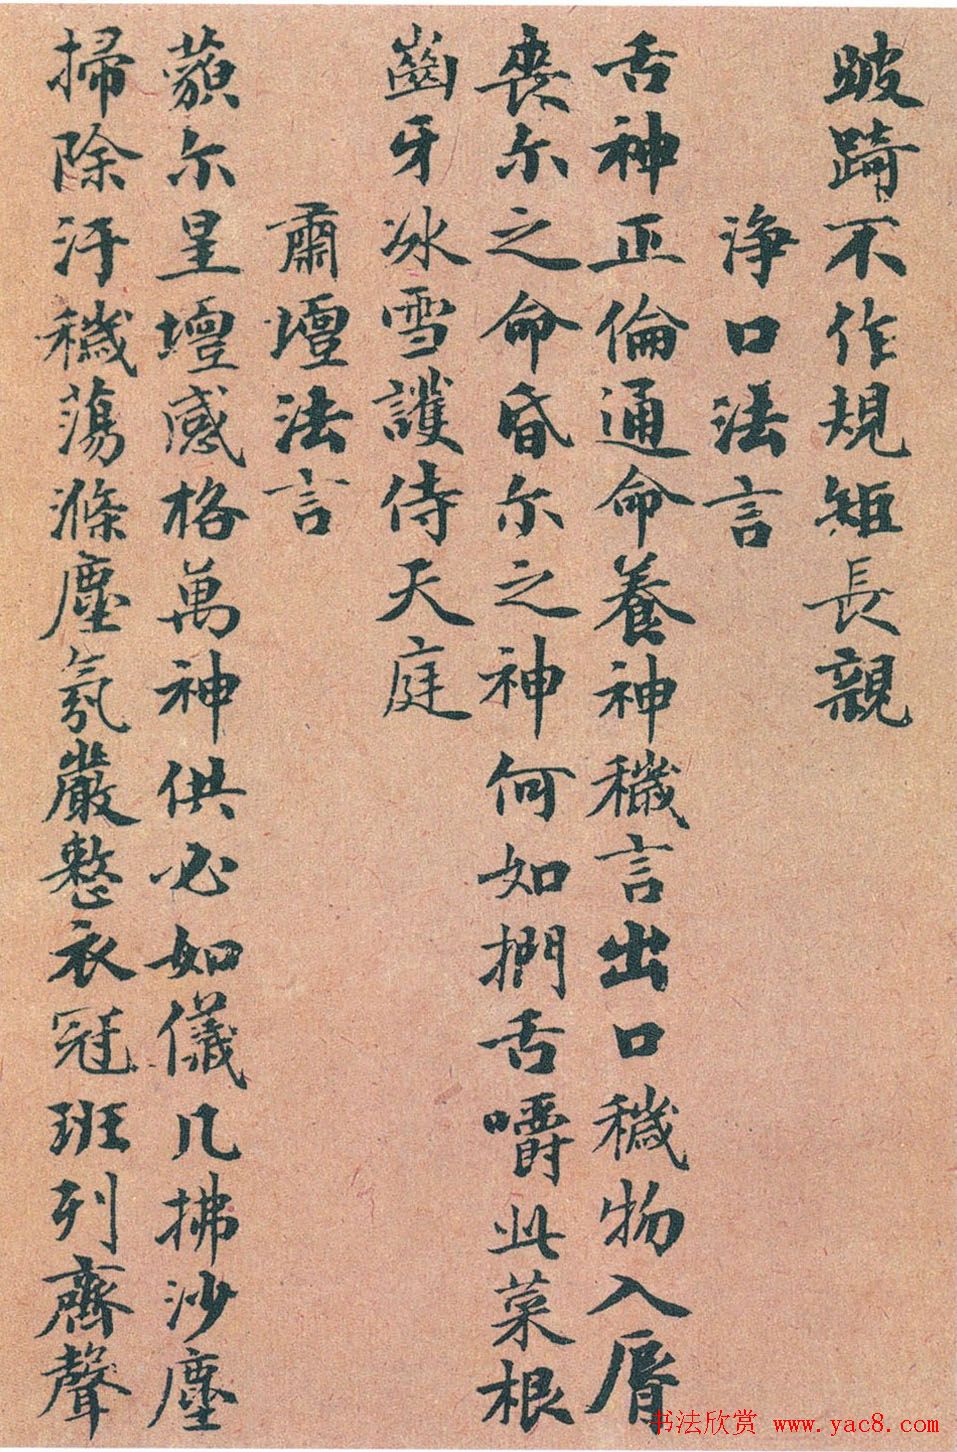 跛踦不作規矩長親
淨口法言
舌神正倫通命養神穢言出口穢物入脣
喪尔之命昏尔之神何如捫舌嚼此菜根
齒牙冰雪護侍天庭
肅壇法言
藐尔星壇感格萬神供必如儀几拂沙塵
掃除汙穢蕩滌塵氛嚴整衣冠班列齊聲
书法欣赏 www.yac8.com